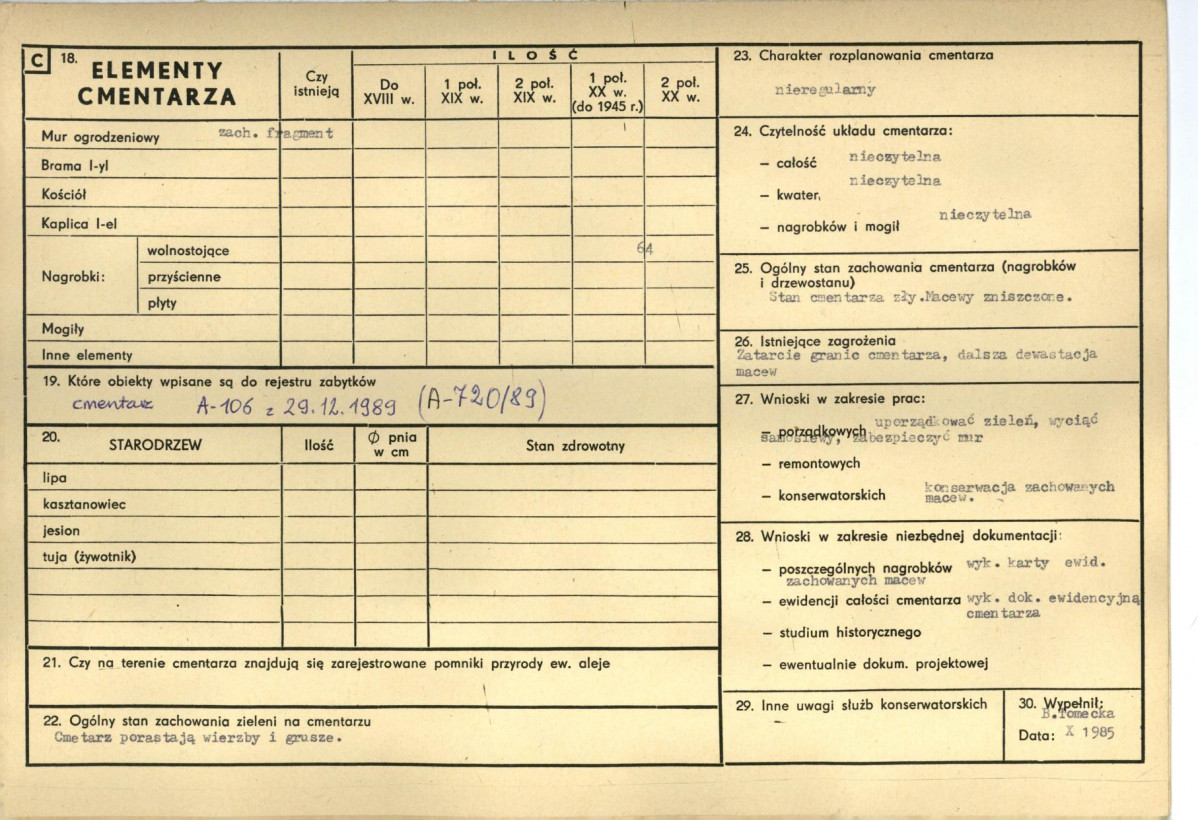 C 18. ELEMENTY CMENTARZA
Czy istnieją
ILOŚĆ
Do XVIII w.
1 poł. XIX w.
2 poł. XIX w.
1 poł. XX w. (do 1945 r.)
2 poł. XX w.
Mur ogrodzeniowy zach. fragment
Brama I-yl
Kościół
Kaplica I-el
Nagrobki:
wolnostojące 64
przyścienne
płyty
Mogiły
Inne elementy
19. Które obiekty wpisane są do rejestru zabytków
cmentarz A-106 z 29.12.1989 (A-720/89)
20. STARODRZEW Ilość Ø pnia w cm Stan zdrowotny
lipa
kasztanowiec
jesion
tuja (żywotnik)
21. Czy na terenie cmentarza znajdują się zarejestrowane pomniki przyrody ew. aleje
22. Ogólny stan zachowania zieleni na cmentarzu
Cmetarz porastają wierzby i grusze.
23. Charakter rozplanowania cmentarza
nieregularny
24. Czytelność układu cmentarza:
– całość nieczytelna
– kwater, nieczytelna
– nagrobków i mogił nieczytelna
25. Ogólny stan zachowania cmentarza (nagrobków
i drzewostanu)
Stan cmentarza zły.Macewy zniszczone.
26. Istniejące zagrożenia
Zatarcie granic cmentarza, dalsza dewastacja
macew
27. Wnioski w zakresie prac:
– porządkowych uporządkować zieleń, wyciąć
samosiewy, zabezpieczyć mur
– remontowych
– konserwatorskich konserwacja zachowanych
macew.
28. Wnioski w zakresie niezbędnej dokumentacji:
– poszczególnych nagrobków wyk. karty ewid.
zachowanych macew
– ewidencji całości cmentarza wyk. dok. ewidencyjną
cmentarza
– studium historycznego
– ewentualnie dokum. projektowej
29. Inne uwagi służb konserwatorskich
–
30. Wypełnił:
B.Tomecka
Data: X 1985